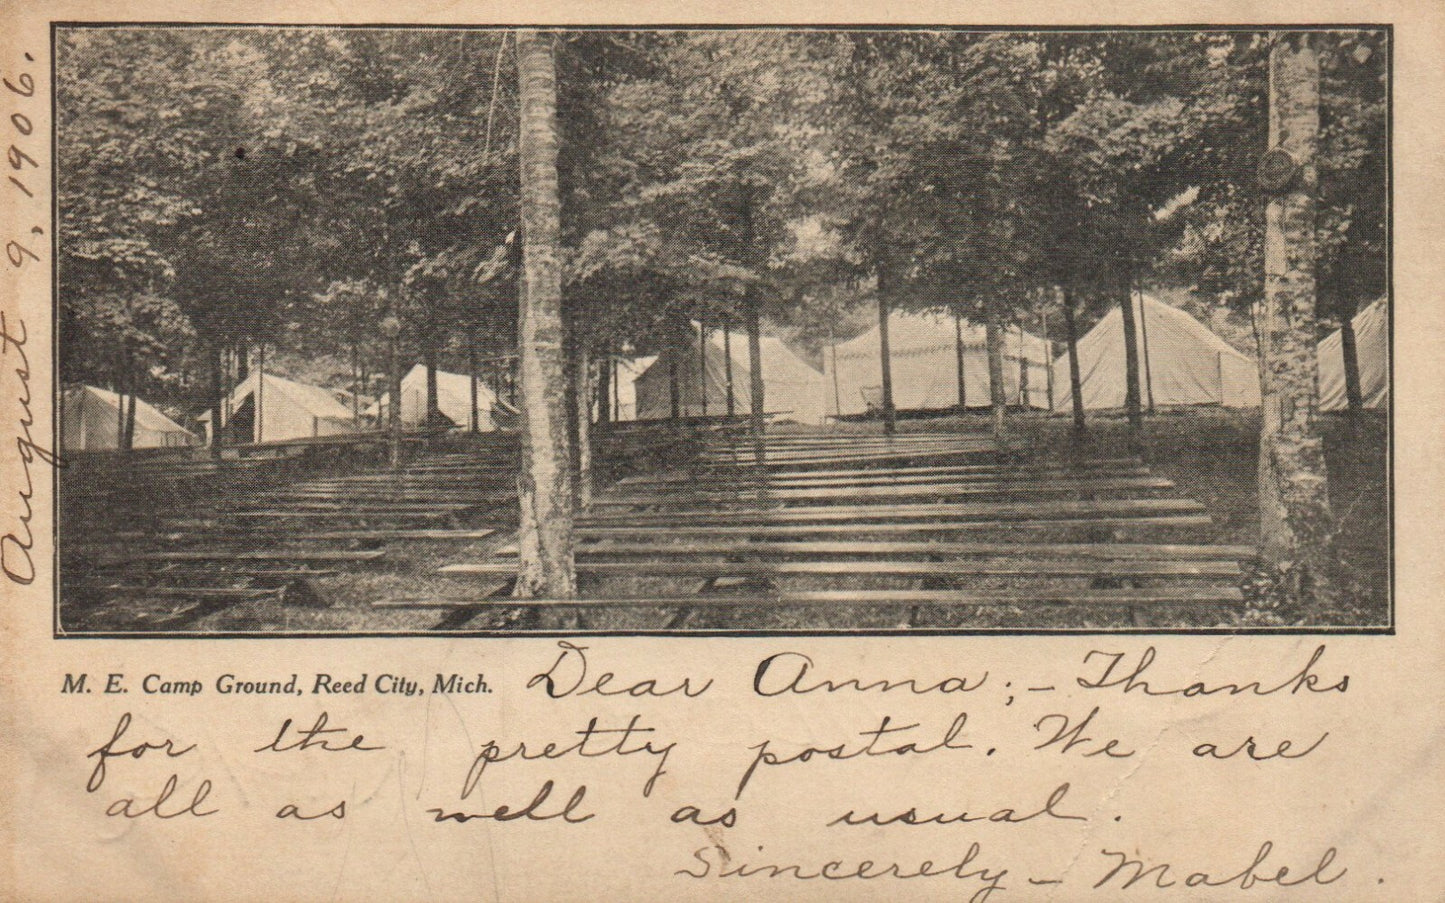 August 9, 1906.
M. E. Camp Ground, Reed City, Mich.
Dear Anna;- Thanks
for the pretty postal. We are
all as well as usual.
Sincerely - Mabel.